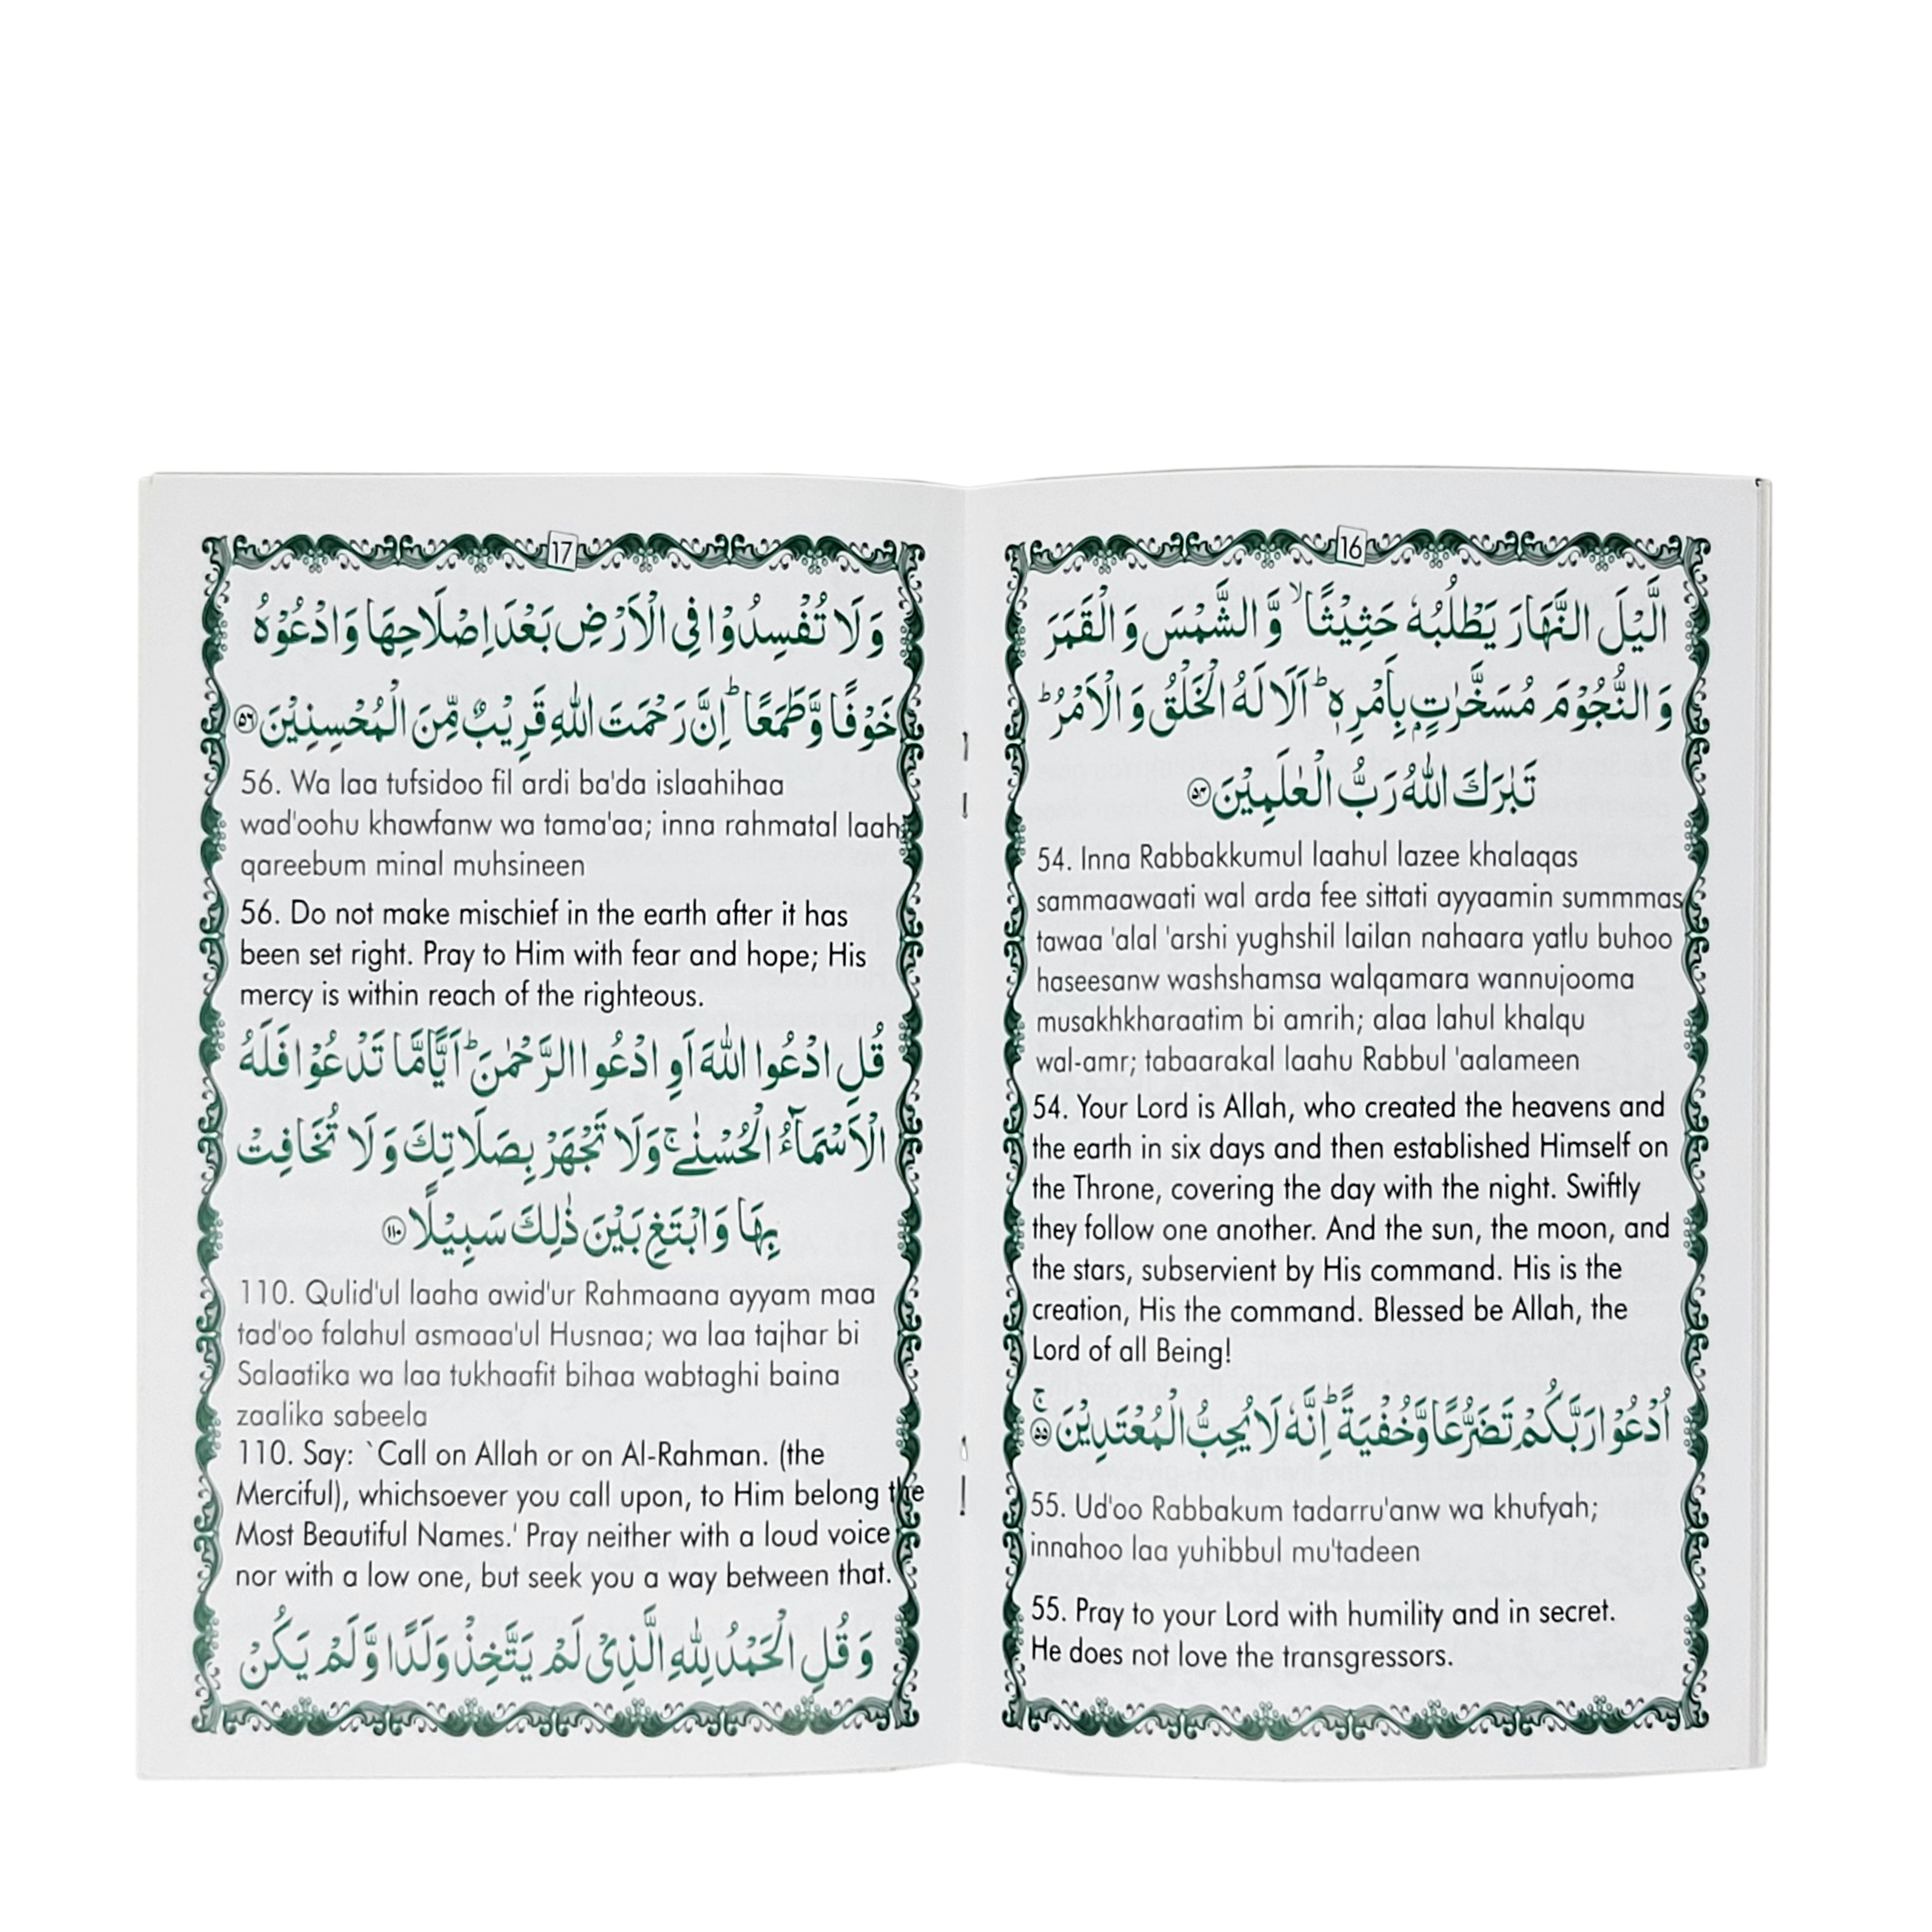 16
الَّيْلَ النَّهَارَ يَطْلُبُهٗ حَثِيْثًا ۙ وَّ الشَّمْسَ وَ الْقَمَرَ
وَ النُّجُوْمَ مُسَخَّرٰتٍۭ بِاَمْرِهٖ ؕ اَلَا لَهُ الْخَلْقُ وَ الْاَمْرُ ؕ
تَبٰرَكَ اللّٰهُ رَبُّ الْعٰلَمِيْنَ ۝۵۴
54. Inna Rabbakkumul laahul lazee khalaqas
sammaawaati wal arda fee sittati ayyaamin summmas
tawaa 'alal 'arshi yughshil lailan nahaara yatlu buhoo
haseesanw washshamsa walqamara wannujooma
musakhkharaatim bi amrih; alaa lahul khalqu
wal-amr; tabaarakal laahu Rabbul 'aalameen
54. Your Lord is Allah, who created the heavens and
the earth in six days and then established Himself on
the Throne, covering the day with the night. Swiftly
they follow one another. And the sun, the moon, and
the stars, subservient by His command. His is the
creation, His the command. Blessed be Allah, the
Lord of all Being!
اُدْعُوْا رَبَّكُمْ تَضَرُّعًا وَّ خُفْيَةً ؕ اِنَّهٗ لَا يُحِبُّ الْمُعْتَدِيْنَ ۝۵۵ ۚ
55. Ud'oo Rabbakum tadarru'anw wa khufyah;
innahoo laa yuhibbul mu'tadeen
55. Pray to your Lord with humility and in secret.
He does not love the transgressors.
17
وَ لَا تُفْسِدُوْا فِى الْاَرْضِ بَعْدَ اِصْلَاحِهَا وَ ادْعُوْهُ
خَوْفًا وَّ طَمَعًا ؕ اِنَّ رَحْمَتَ اللّٰهِ قَرِيْبٌ مِّنَ الْمُحْسِنِيْنَ ۝۵۶
56. Wa laa tufsidoo fil ardi ba'da islaahihaa
wad'oohu khawfanw wa tama'aa; inna rahmatal laahi
qareebum minal muhsineen
56. Do not make mischief in the earth after it has
been set right. Pray to Him with fear and hope; His
mercy is within reach of the righteous.
قُلِ ادْعُوا اللّٰهَ اَوِ ادْعُوا الرَّحْمٰنَ ؕ اَيًّا مَّا تَدْعُوْا فَلَهُ
الْاَسْمَآءُ الْحُسْنٰى ۚ وَ لَا تَجْهَرْ بِصَلَاتِكَ وَ لَا تُخَافِتْ
بِهَا وَ ابْتَغِ بَيْنَ ذٰلِكَ سَبِيْلًا ۝۱۱۰
110. Qulid'ul laaha awid'ur Rahmaana ayyam maa
tad'oo falahul asmaaa'ul Husnaa; wa laa tajhar bi
Salaatika wa laa tukhaafit bihaa wabtaghi baina
zaalika sabeela
110. Say: `Call on Allah or on Al-Rahman. (the
Merciful), whichsoever you call upon, to Him belong the
Most Beautiful Names.' Pray neither with a loud voice
nor with a low one, but seek you a way between that.
وَ قُلِ الْحَمْدُ لِلّٰهِ الَّذِىْ لَمْ يَتَّخِذْ وَلَدًا وَّ لَمْ يَكُنْ